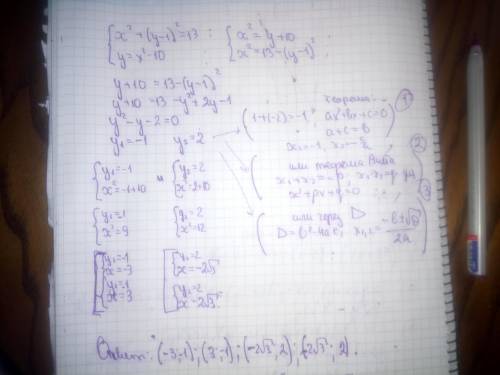 {x²+(y-1)²=13 ; {x²=y+10
{y=x²-10 {x²=13-(y-1)²
y+10=13-(y-1)²
y+10=13-y²+2y-1
y²-y-2=0
y₁=-1 y₂=2
(1+(-2)=-1, теорема ①
ax²+bx+c=0)
a+c=b
x₁=-1, x₂=-c/a
или теорема Виета ②
x₁+x₂=-p, x₁x₂=q
x²+px+q=0
или через D ③
D=b²-4ac, x₁,₂=(-b±√D)/2a
{y₁=-1 и {y₂=2
{x²=-1+10 {x²=2+10
{y₁=-1 {y₂=2
{x²=9 {x²=12
[{y₁=-1 [{y₂=2
{x=-3 {x=-2√3
{y₁=-1 {y₂=2
{x=3 {x=2√3
Ответ: (-3;-1); (3;-1); (-2√3; 2); (2√3; 2).